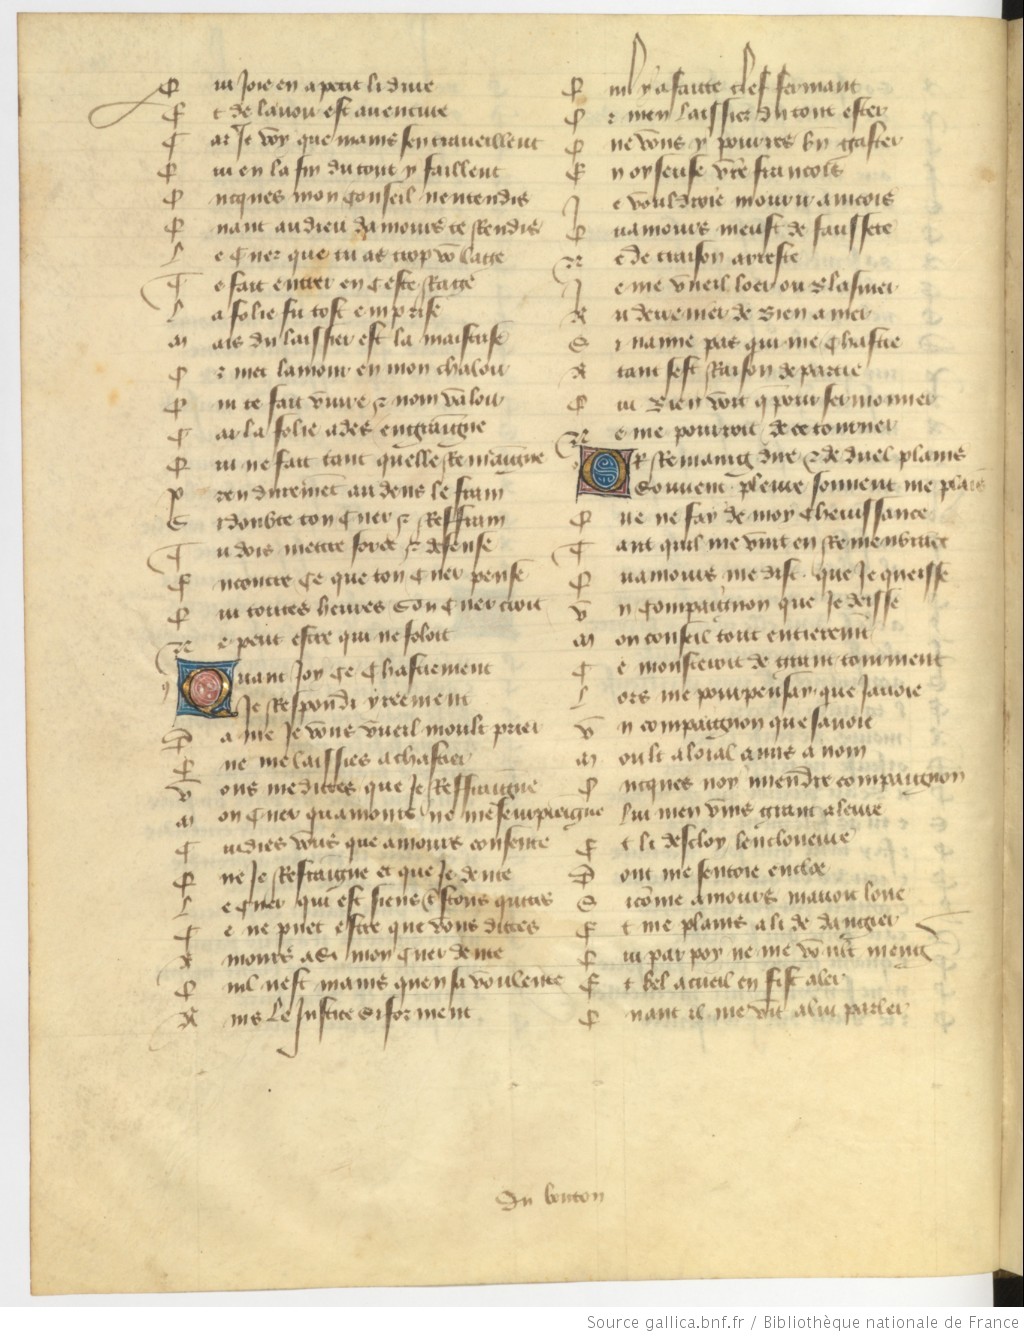 Qui Joie en a petit li dure
Et de lavoir est auenture
Car Je voy que mains sen traueillent
Qui en la fin du tout y faillent
Oncques mon conseil nentendis
Quant au dieu damours te rendis
Le cuer que tu as trop volage
Te fait entrer en ceste rage
La folie fu tost emprise
Mais du laissier est la maistrise
Or met lamour en non chaloir
Qui te fait viure et non valoir
Car la folie ades engraingne
Qui ne fait tant quelle remaingne
Pren durement au dens le frain
Et doubte ton cuer et reffrain
Tu dois mettre force et defense
Encontre ce que ton cuer pense
Qui toutes heures son cuer croit
Ne peut estre qui ne foloit
Quant Joy ce chastiement
Je respondi yreement
Dame Je vous vueil moult prier
Que me laissies a chastier
Vous me dittes que Je reffraingne
Mon cuer quamours ne me seurpreigne
Cuidies vous que amours consente
Que Je refraingne et que Je dente
Le cuer qui est siens trestous quittes
Ce ne puet estre que vous dittes
Amours a si mon cuer dente
Quil nest mains que a sa voulente
Ains le Justice si forment
Quil y a faitte clef fermant
Or men laissier du tout ester
Que vous y pourres bien gaster
En oyseuse vostre francois
Je vouldroie mourir aincois
Quamours meust de faussete
Ne de traison arreste
Je me vueil loer ou blasmer
Au derrenier de bien amer
Si nanne pas qui me chastie
Atant sest Raison departie
Qui bien voit que pour sermonner
Ne me pourroit de ce tourner
Or remaing dire et de duel plains
Souuent pleure souuent me plains
Que ne say de moy cheuissance
Tant quil me vint en remenbrance
Quamours me dist que Je queisse
Vn compaignon que Je deisse
Mon conseil tout entierement
Ce mosteroit de grant tourment
Lors me pourpensay que Jauoie
Vn compaignon que sauoie
Moult a loial amis a nom
Oncques noy miendre compaignon
A lui men vins grant aleure
Et li descloy lencloueure
Dont me sentoie encloe
Si come amours mauoit loue
Et me plains a li de dangier
Qui par poy ne me voult mengier
Et bel acueil en fist aler
Quant il me vit a lui parler
Du bouton
Source gallica.bnf.fr / Bibliothèque nationale de France